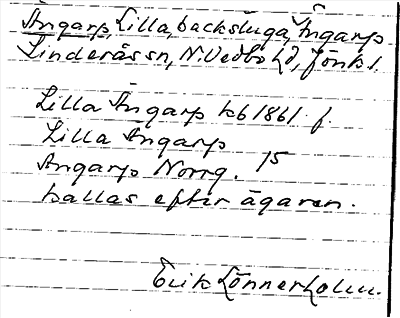 Ängarp, Lilla, backstuga, Ängarp
Linderås sn, N. Vedbo hd, Jönk l.
Lilla Ängarp kb 1861 f
Lilla Ängarp
Ängarp Norrg. 15
kallas efter ägaren.
Erik Lönnerholm.